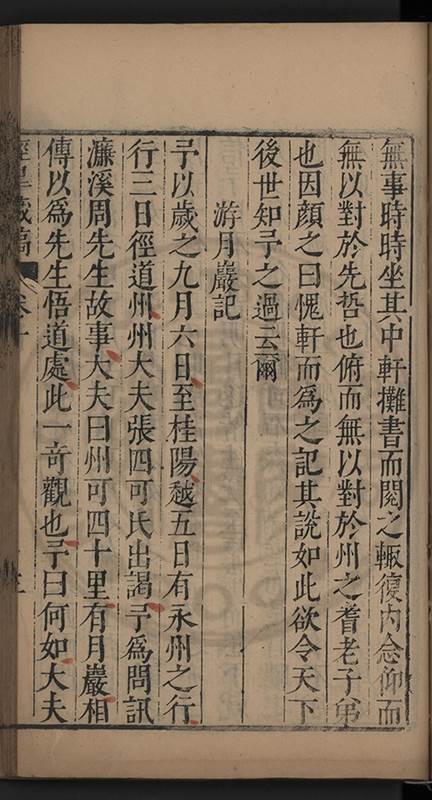 無事時時坐其中軒攤書而閱之輒復内念仰而
無以對於先哲也俯而無以對於州之耆老子弟
也因顔之曰愧軒而為之記其說如此欲令天下
後世知予之過云爾
游月巖記
予以歲之九月六日至桂陽越五日有永州之行
行三日徑道州州大夫張四可氏出謁予為問訊
濂溪周先生故事大夫曰州可四十里有月巖相
傳以為先生悟道處此一奇觀也予曰何如大夫
藏稿 卷十